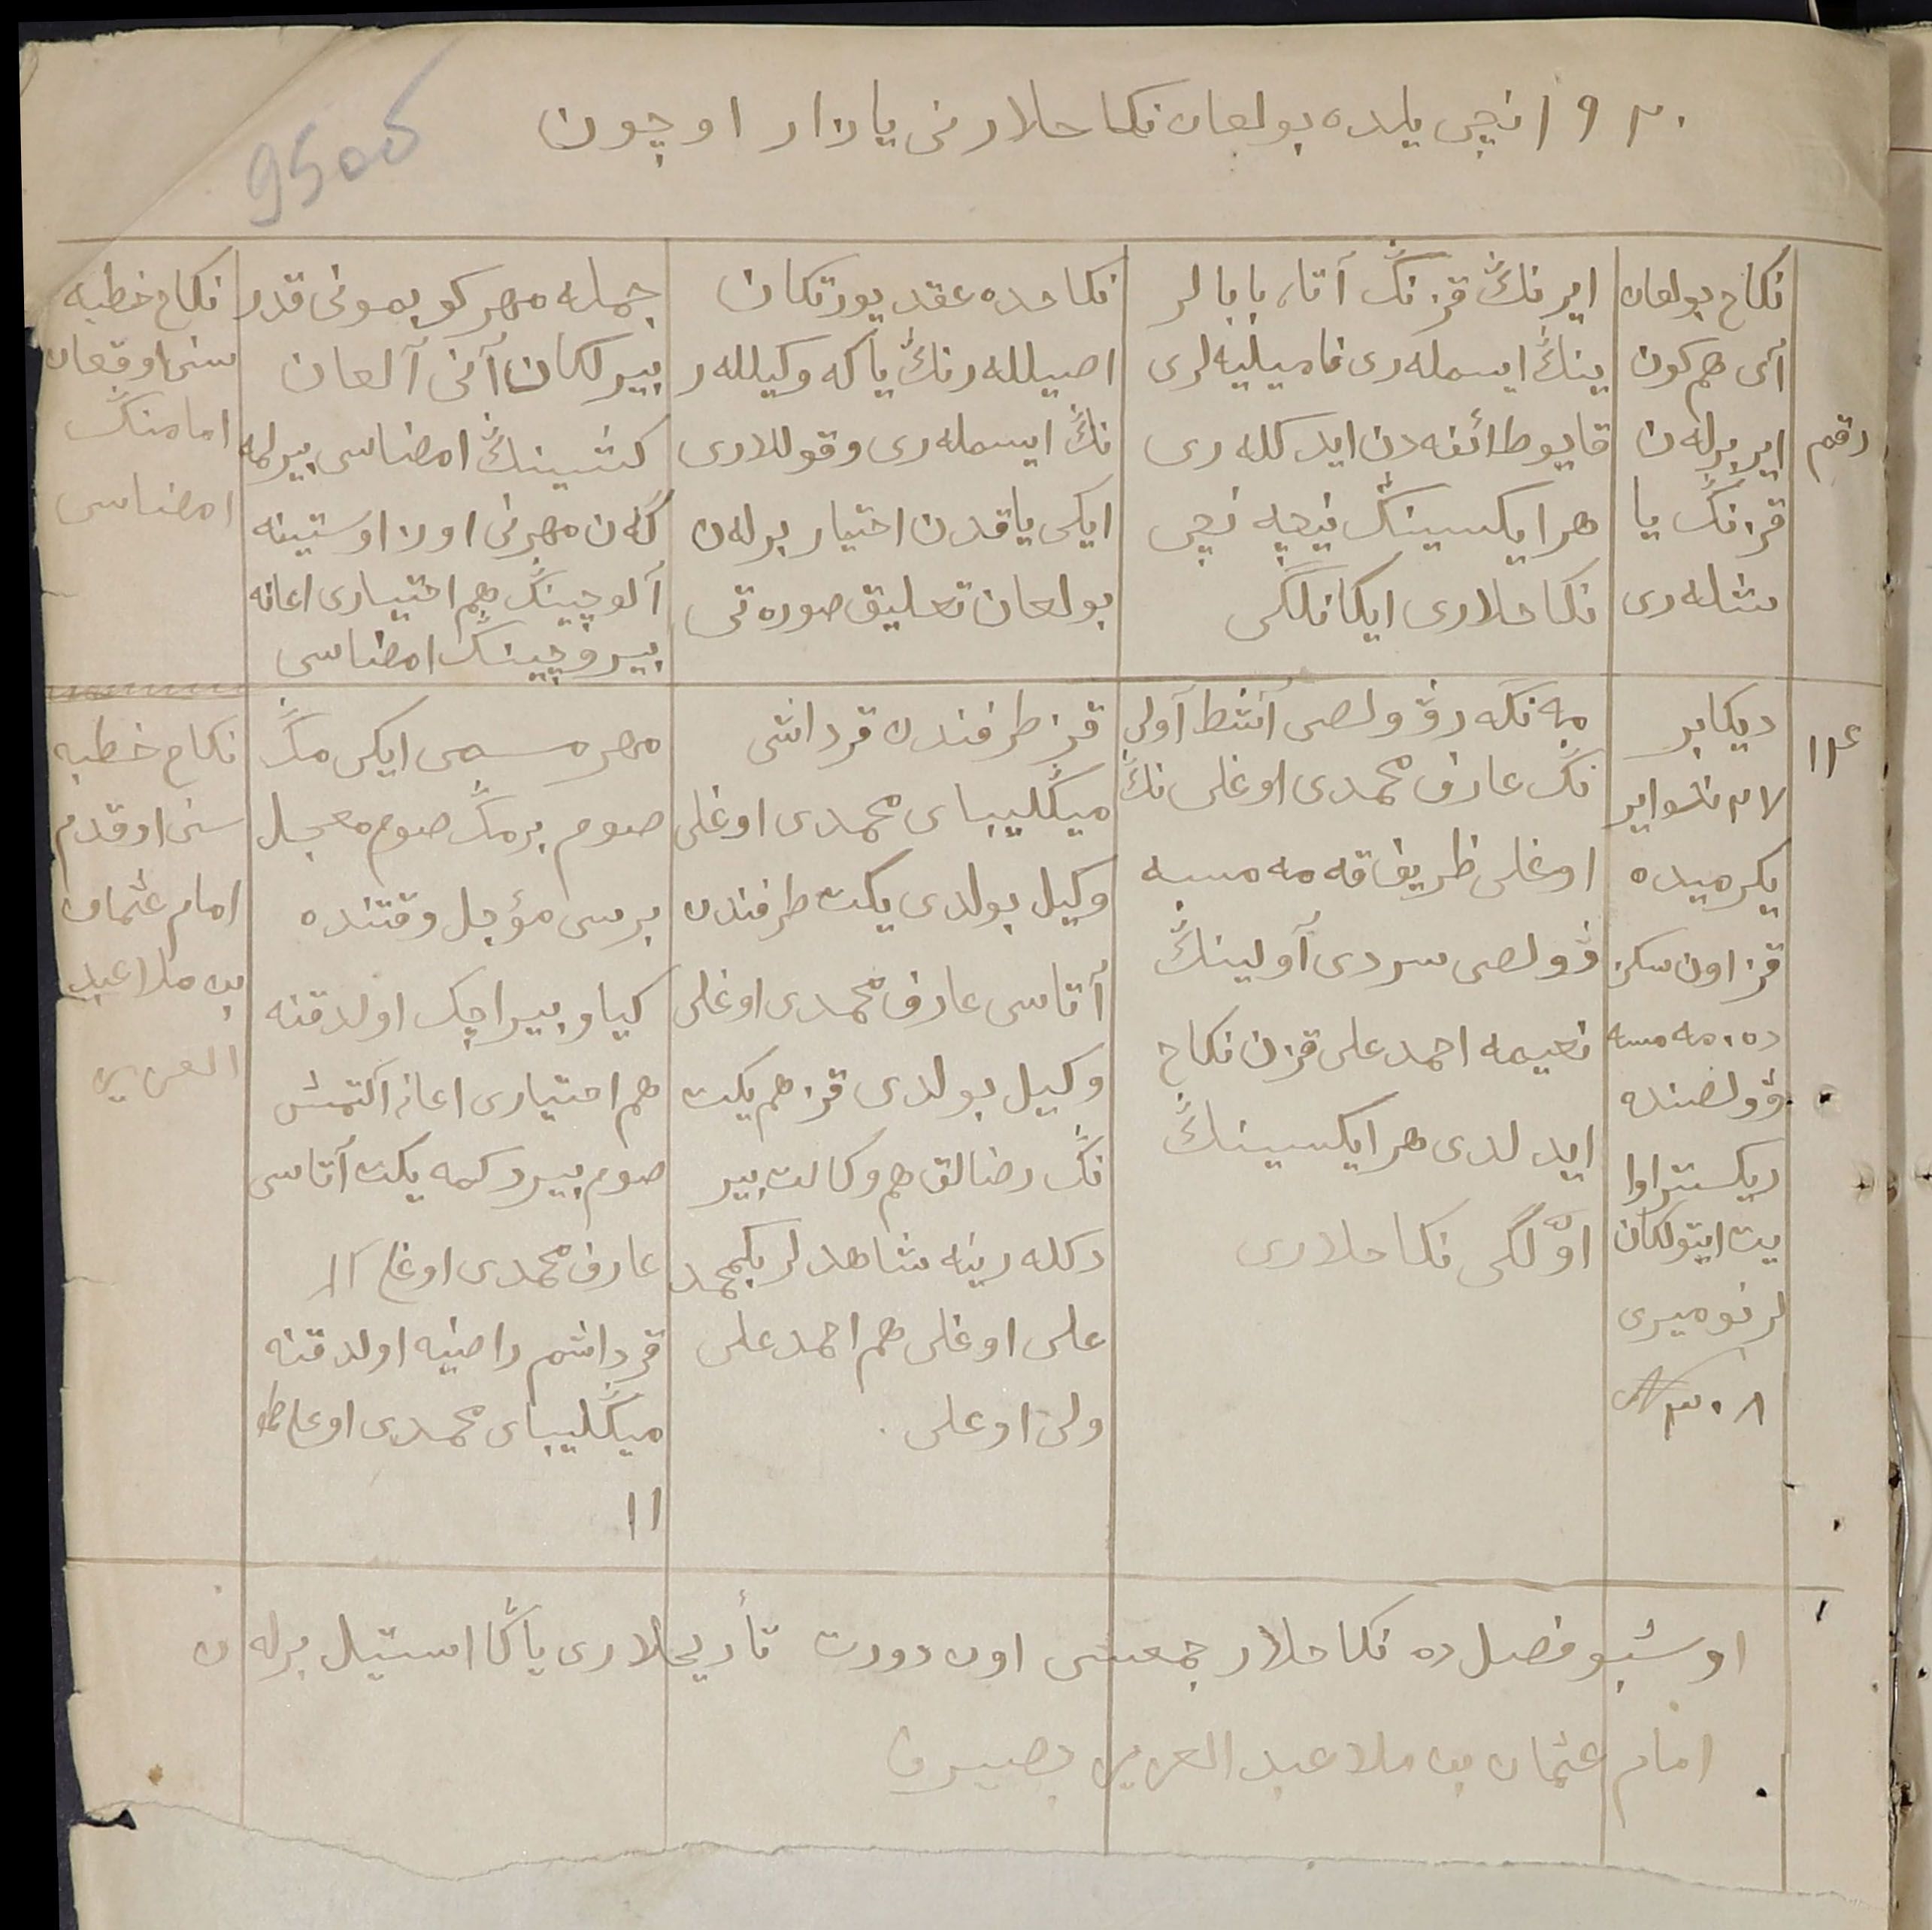 ١٩٢٠ نچی یلده بولعان نکاحلارنی یازار اوچون
9500
رقم
نکاح بولعان
آی هم کون
ایر برله ن
قزنڭ یا
شله ری
ایرنڭ قزنڭ آتا، بابا لر
ینڭ ایسمله ری فامیلیه لری
قایو طائفه دن ایدکله ری
هر ایکسینڭ نیچه نچی
نکاحلاری ایکانلگی
نکاحده عقد یورتکان
اصیللله رنڭ یاکه وکیللله ر
نڭ ایسمله ری وقوللاری
ایکی یاقدن اختیار برله ن
بولعان تعلیق صوره تی
جمله مهر کوبمونی قدر
بیرلکان آنی آلعان
کشینڭ امضاسی بیرلمه
گه ن مهرنی اوز اوستینه
آلوچینڭ هم اختیاری اعانه
بیروچینڭ امضاسی
نکاح خطبه
سنی اوقعان
امامنڭ
امضاسی
دیکابر
ایر
یکرمیده
قز اون سکز
ده. مه مسه
ۋولصنده
ریکستراوا
یت ایتولکان
لر نومیری
№ ٣٠٨
مه نگه رۋ ۋولصی آشط آولی
نڭ عارف محمدی اوغلی نڭ
اوغلی ظریف قه مه مسه
ۋولصی سردی آولینڭ
نعیمه احمدعلی قزن نکاح
ایدلدی هر ایکسینڭ
اوّلگی نکاحلاری
قز طرفندن قرداشی
میڭلیبای محمدی اوغلی
وکیل بولدی یکت طرفندن
آتاسی عارف محمدی اوغلی
وکیل بولدی قز هم یکت
نڭ رضالق هم وکالت بیر
دکله رینه شاهدلر بکمحمد
علی اوغلی هم احمدعلی
ولی اوغلی.
مهر مسمی ایکی مڭ
صوم بر مڭ صوم معجل
برسی مؤجل وقتنده
کیاو بیراچک اولدقنه
هم اختیاری اعانه آلتمش
صوم بیردکمه یکت آتاسی
عارف محمدی اوغلی
قرداشم راضیه اولدقنه
میڭلیبای محمدی اوغلی
نکاح خطبه
سنی اوقدم
امام عثمان
بن ملا عبد
العزیز
اوشبو فصل ده نکاحلار جمعسی اون دورت تأریخلاری یاڭا استیل برله ن
امام عثمان بن ملا عبد العزیز بصیرف